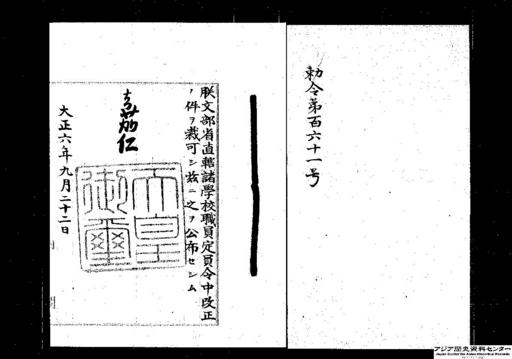 勅令第百六十一号
朕文部省直轄諸學校職員定員令中改正
ノ件ヲ裁可シ茲ニ之ヲ公布セシム
嘉仁
天皇御璽
大正六年九月二十二日
アジア歴史資料センター
Japan Center for Asian Historical Records